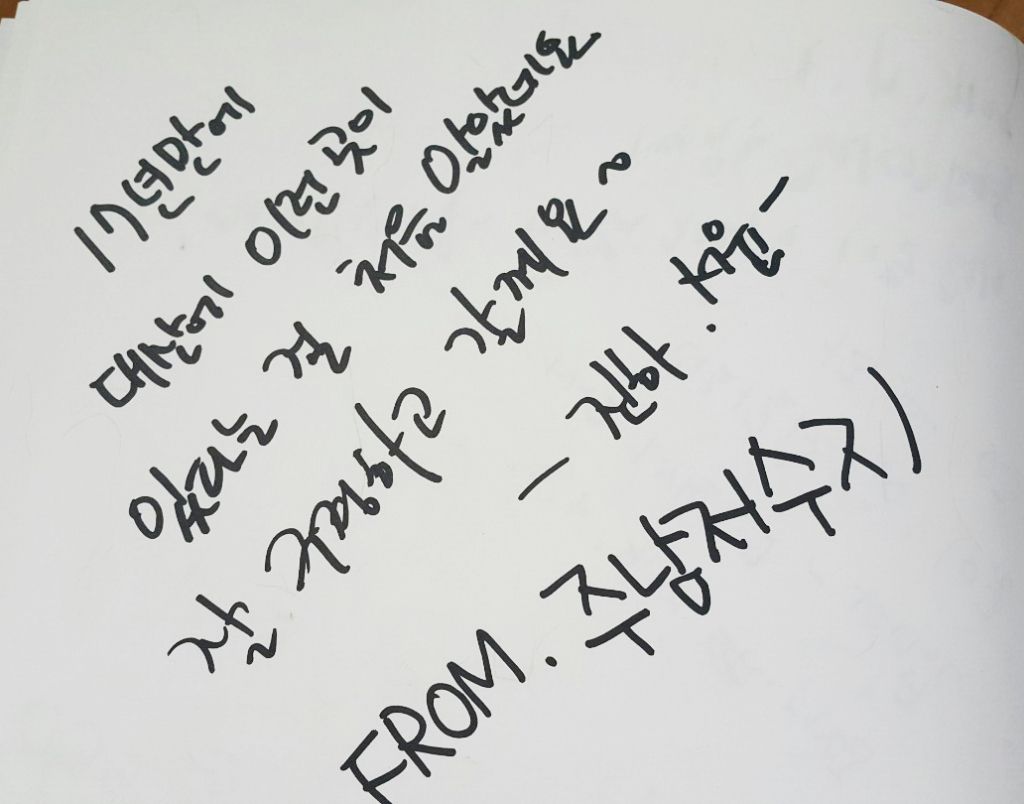 17년만에
대산에 이런 곳이
있다는 걸 처음 알았네요
잘 구경하고 갈께요~
- 진하.지윤 -
FROM. 주남저수지